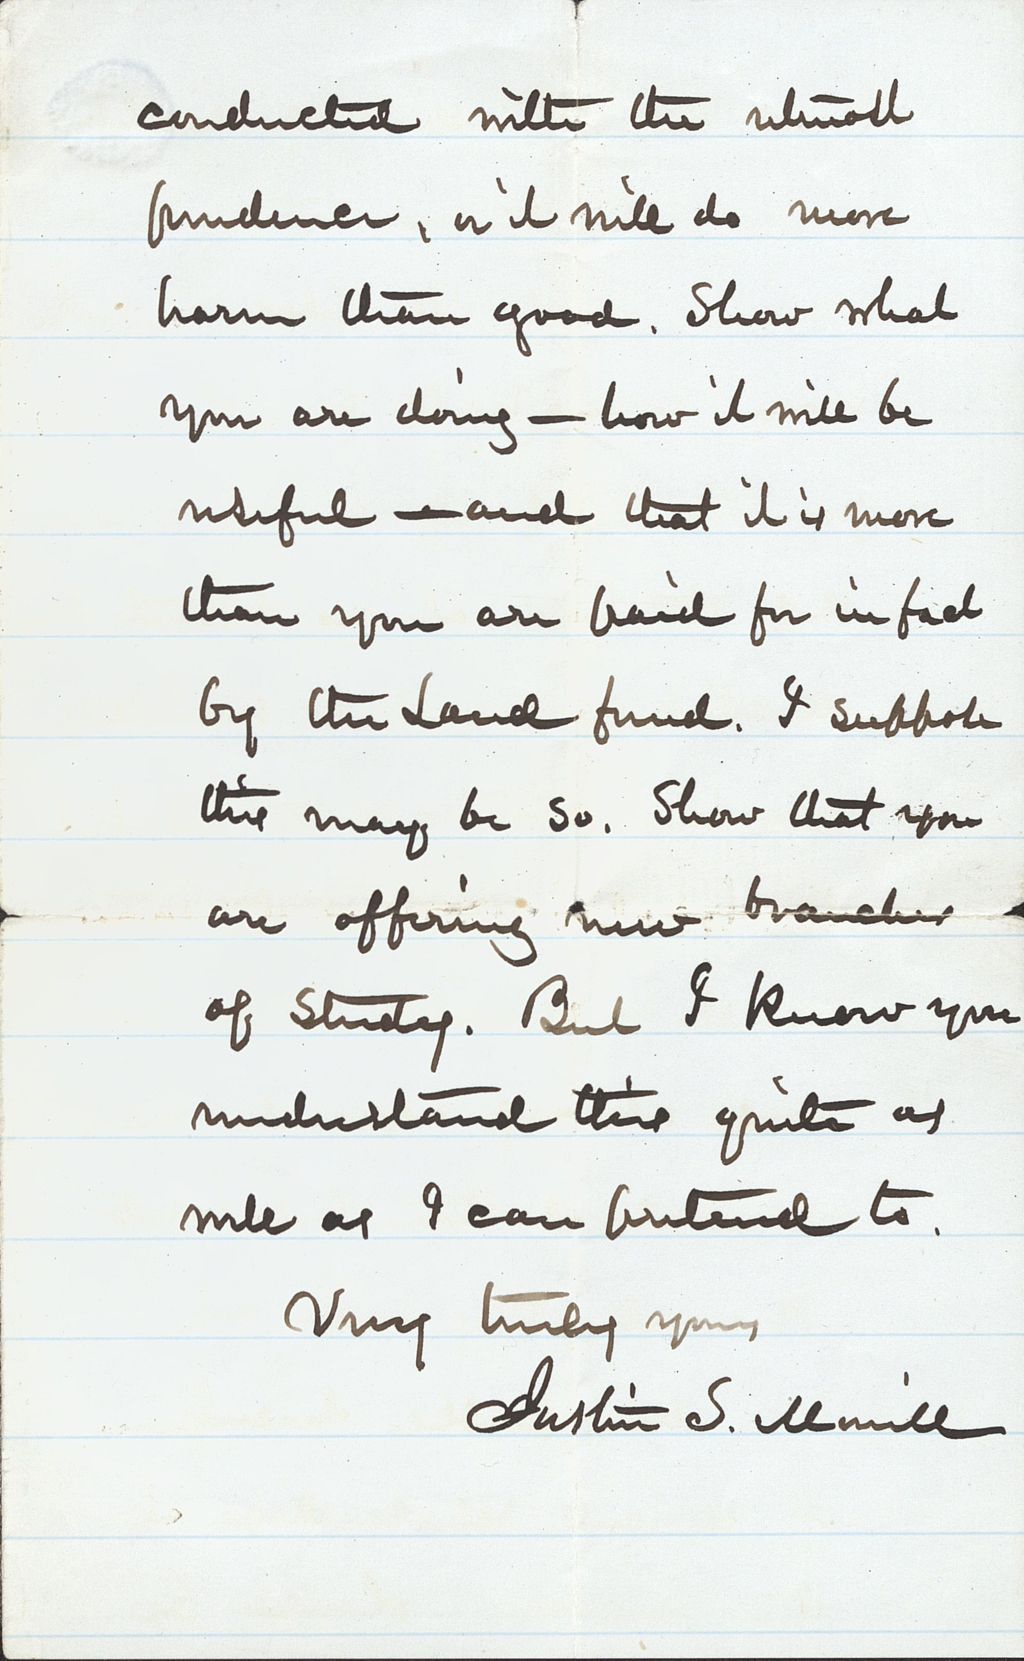 conducted with the utmost
prudence, or it will do more
harm than good. Show what
you are doing — how it will be
useful — and that it is more
than you are paid for in fact
by the Land fund. I suppose
this may be so. Show that you
are offering new branches
of Study. But I know you
understand this quite as
well as I can pretend to.
Very truly yours
Justin S. Morrill